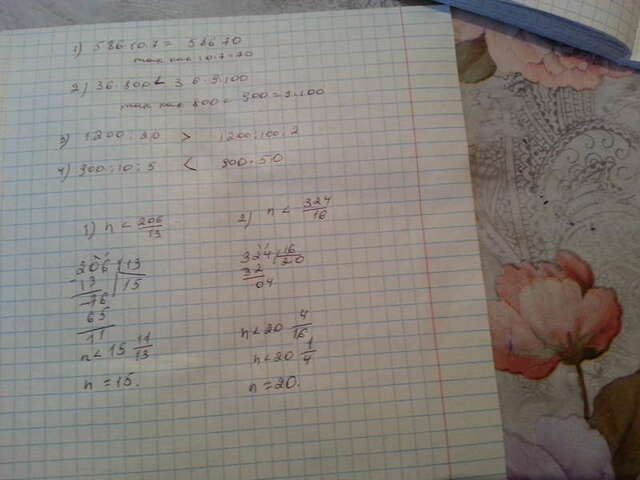 1) 586·10·7 = 586·70
так как 10·7=70
2) 36·800 < 36·9·100
так как 800 < 900 = 9·100
3) 1200 : 20 > 1200:100:2
4) 900:10:5 < 900·50
1) n < 206/13
206 | 13
13 | 15
76
65
11
n < 15 11/13
n = 15.
2) n < 324/16
324 | 16
32 | 20
04
n < 20 4/16
n < 20 1/4
n = 20.